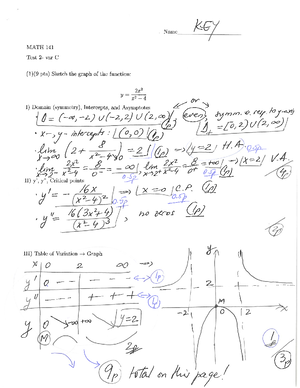 Name: KEY
MATH 141
Test 2- ver C
(1)(9 pts) Sketch the graph of the function:
y = 2x²/(x²-4)
I) Domain (symmetry), Intercepts, and Asymptotes
D = (-∞,-2) ∪ (-2,2) ∪ (2,∞) (1p) or even symm. D₊ = [0,2) ∪ (2,∞)
• x-, y- intercepts: (0,0) (1p)
lim x→∞ (2 + 8/(x²-4)) = 2! (1p) ⇒ y=2 H.A.
lim 2x²/(x²-4) = 8/0⁻ = -∞ lim 2x²/(x²-4) = 8/0⁺ = +∞ ⇒ x=2 V.A.
II) y', y'', Critical points
• y' = -16x/(x²-4)² (1p) ⇒ x=0 C.P. (1p)
• y'' = 16(3x²+4)/(x²-4)³ (1p), no zeros (1p)
III) Table of Variation → Graph
x 0 2 ∞
y' 0 - - - -
y'' - - + + +
y 0 -∞ +∞ y=2
M
y
-2 M 2 x
9p total on this page!
3p